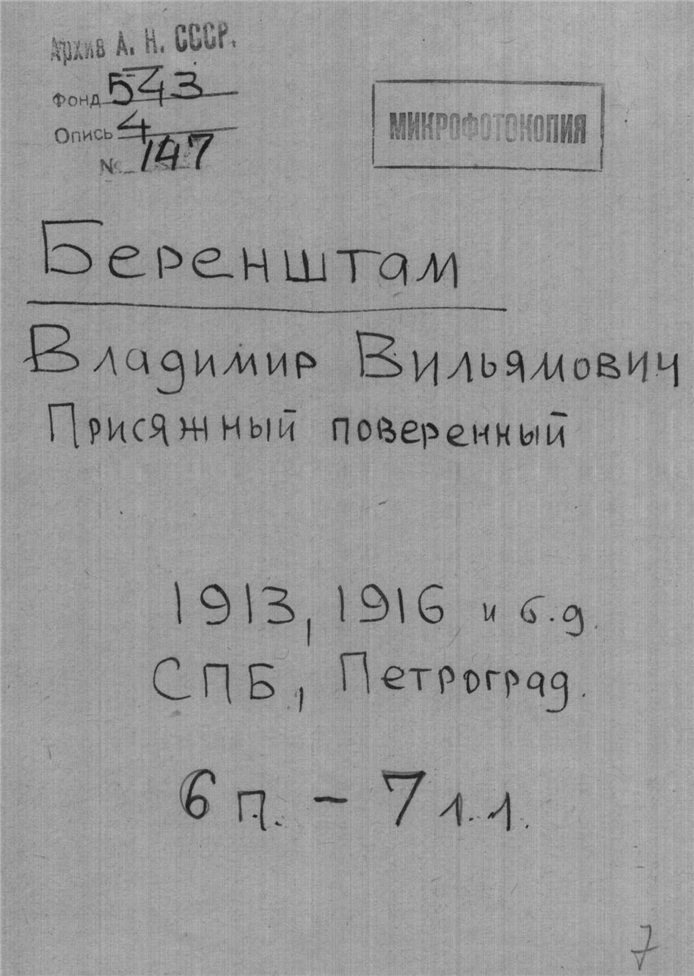 Архив А. Н. СССР.
Фонд 543
Опись 4
№ 147
МИКРОФОТОКОПИЯ
Беренштам
Владимир Вильямович
Присяжный поверенный
1913, 1916 и б.д.
СПБ, Петроград.
6 п. – 7 л.л.
7